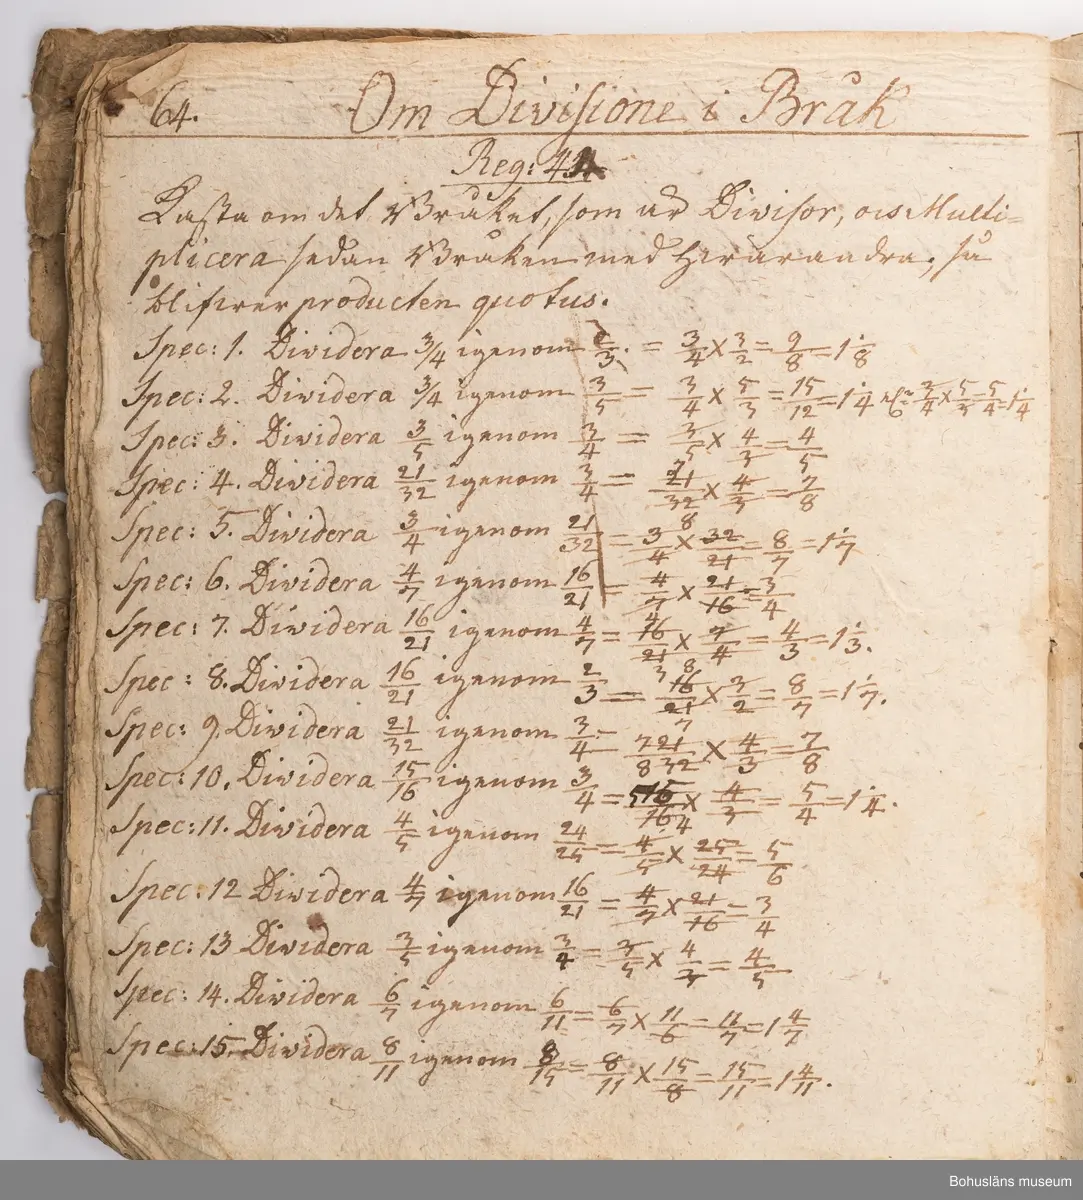 64. Om Divisione i Bråk
Reg: 44
Kasta om det Bråket, som är Divisor, och Multi=
plicera sedan Bråken med hvarandra, så
blifver producten quotus.
Spec: 1. Dividera 3/4 igenom 2/3. = 3/4 × 3/2 = 9/8 = 1 1/8
Spec: 2. Dividera 3/4 igenom 3/5 = 3/4 × 5/3 = 15/12 = 1 1/4 3/4 × 5/3 = 5/4 = 1 1/4
Spec: 3. Dividera 3/5 igenom 3/4 = 3/5 × 4/3 = 4/5
Spec: 4. Dividera 21/32 igenom 3/4 = 7 21/32 8 × 4/3 = 7/8
Spec: 5. Dividera 3/4 igenom 21/32 = 3/4 × 32/21 = 8/7 = 1 1/7
Spec: 6. Dividera 4/7 igenom 16/21 = 4/7 × 21/16 = 3/4
Spec: 7. Dividera 16/21 igenom 4/7 = 4 16/21 3 × 7/4 = 4/3 = 1 1/3.
Spec: 8. Dividera 16/21 igenom 2/3 = 8 16/21 7 × 3/2 = 8/7 = 1 1/7.
Spec: 9. Dividera 21/32 igenom 3/4 = 7 21/8 32 × 4/3 = 7/8
Spec: 10. Dividera 15/16 igenom 3/4 = 5 15/16 4 × 4/3 = 5/4 = 1 1/4.
Spec: 11. Dividera 4/5 igenom 24/25 = 4/5 × 25/24 = 5/6
Spec: 12 Dividera 4/7 igenom 16/21 = 4/7 × 21/16 = 3/4
Spec: 13 Dividera 3/5 igenom 3/4 = 3/5 × 4/3 = 4/5
Spec: 14. Dividera 6/7 igenom 6/11 = 6/7 × 11/6 = 11/7 = 1 4/7
Spec: 15. Dividera 8/11 igenom 8/15 = 8/11 × 15/8 = 15/11 = 1 4/11.
Bohusläns museum